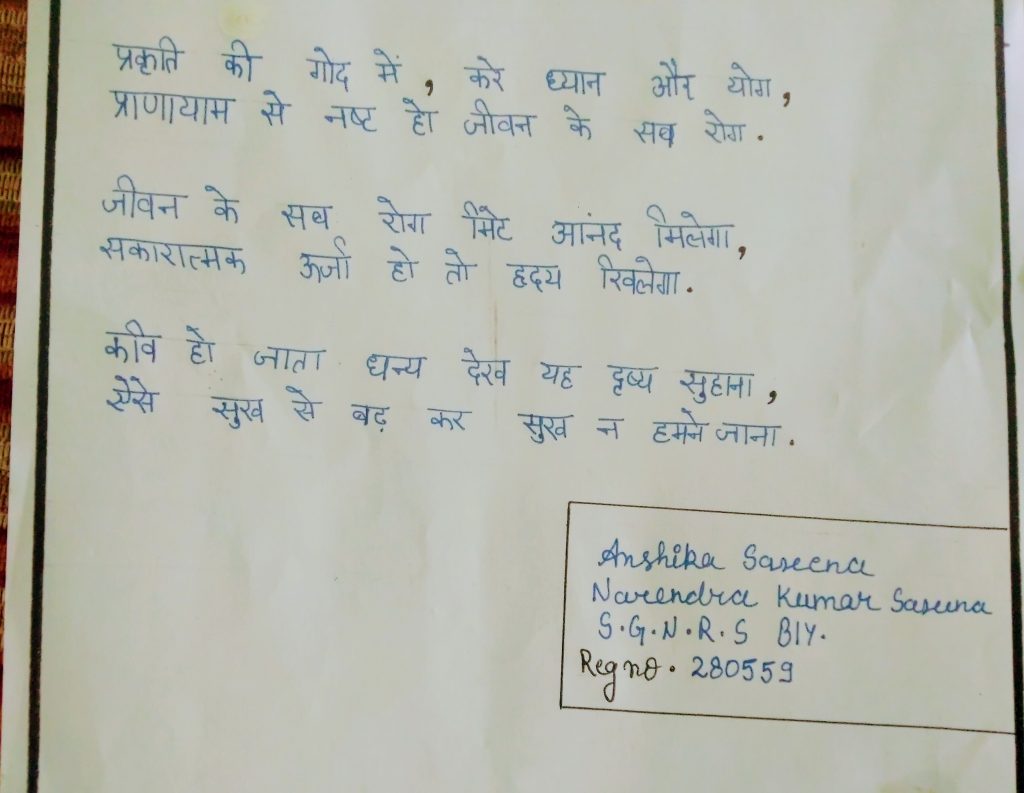 प्रकृति की गोद में, करे ध्यान और योग,
प्राणायाम से नष्ट हो जीवन के सब रोग.
जीवन के सब रोग मिटे आनंद मिलेगा,
सकारात्मक ऊर्जा हो तो हृदय खिलेगा.
कवि हो जाता धन्य देख यह दृष्य सुहाना,
ऐसे सुख से बढ़ कर सुख न हमने जाना.
Anshika Saxeena
Narendra Kumar Saxeena
S.G.N.R.S BIY.
Reg no. 280559